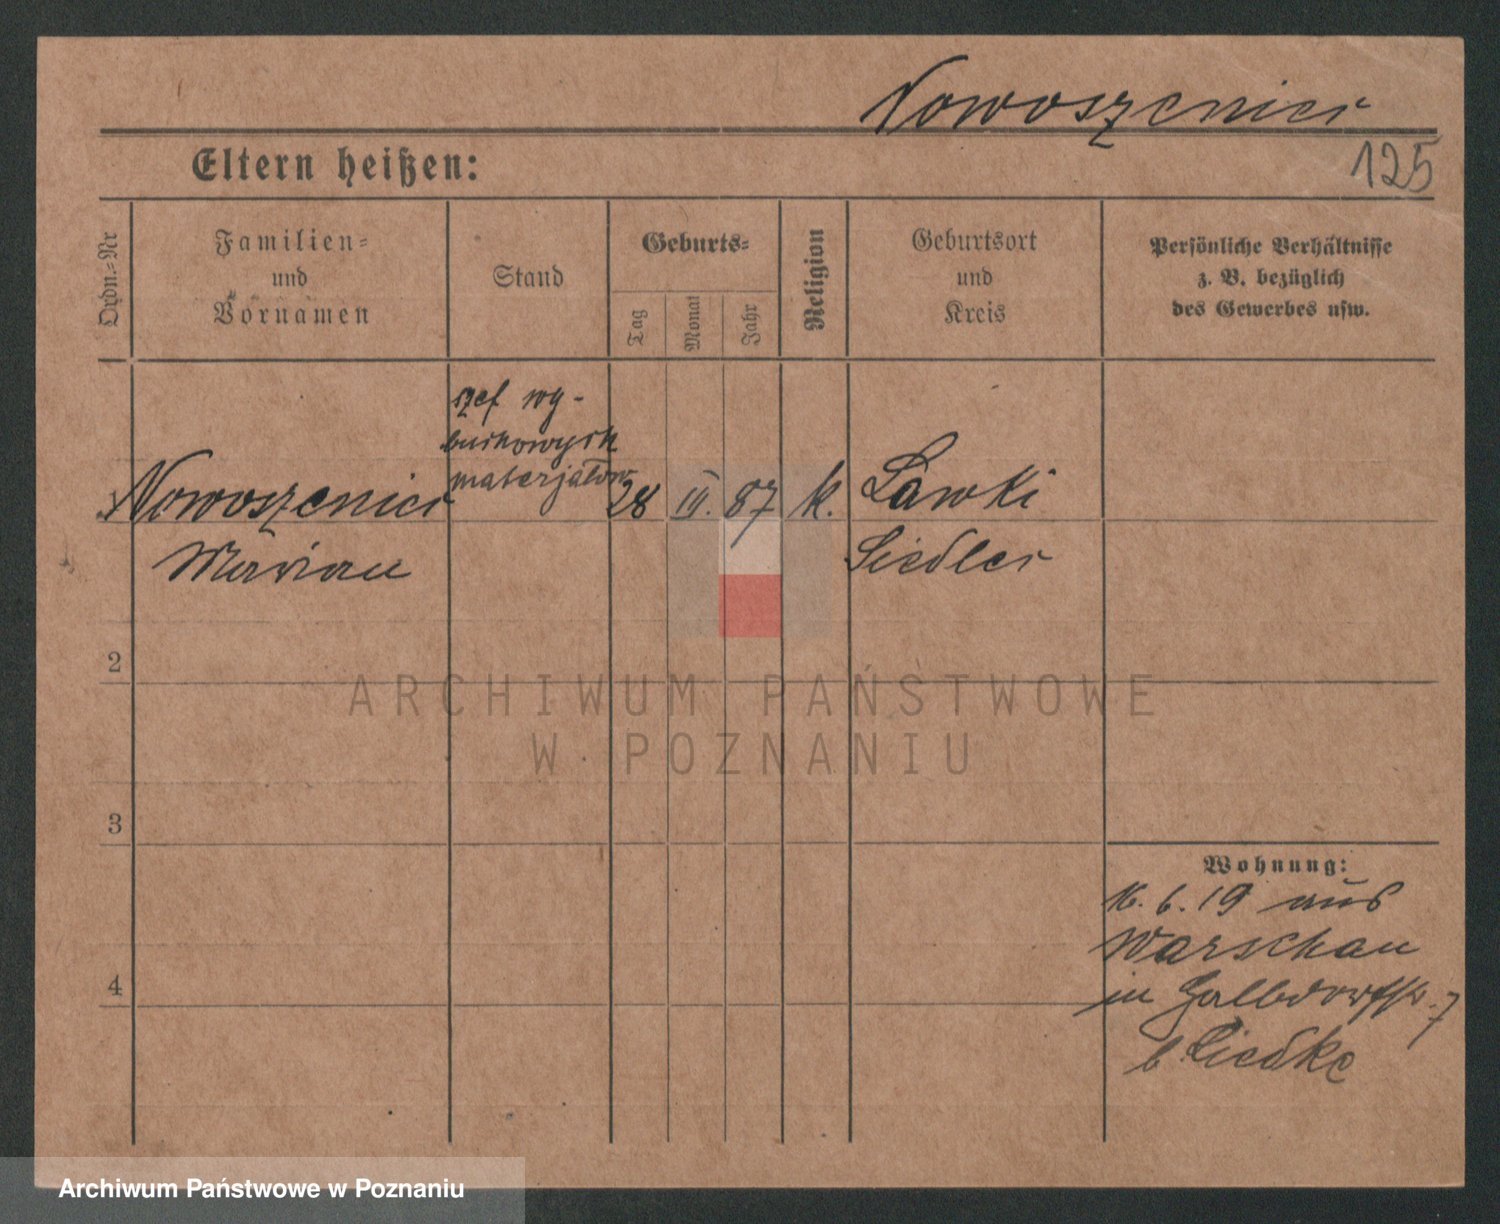 Nowoszenicr
125
Eltern heißen:
Ordn.-Nr
Familien-
und
Vornamen
Stand
Geburts-
Tag
Monat
Jahr
Religion
Geburtsort
und
Kreis
Persönliche Verhältnisse
z. B. bezüglich
des Gewerbes usw.
szef wy-
buchowych
materjałów
1 Nowoszenicr 28 III. 87 k. Lawki
Marian Siedler
2
3
4
Wohnung:
16. 6. 19 aus
Warschau
in Halbdorfstr. 7
b. Liedke
ARCHIWUM PAŃSTWOWE
W POZNANIU
Archiwum Państwowe w Poznaniu